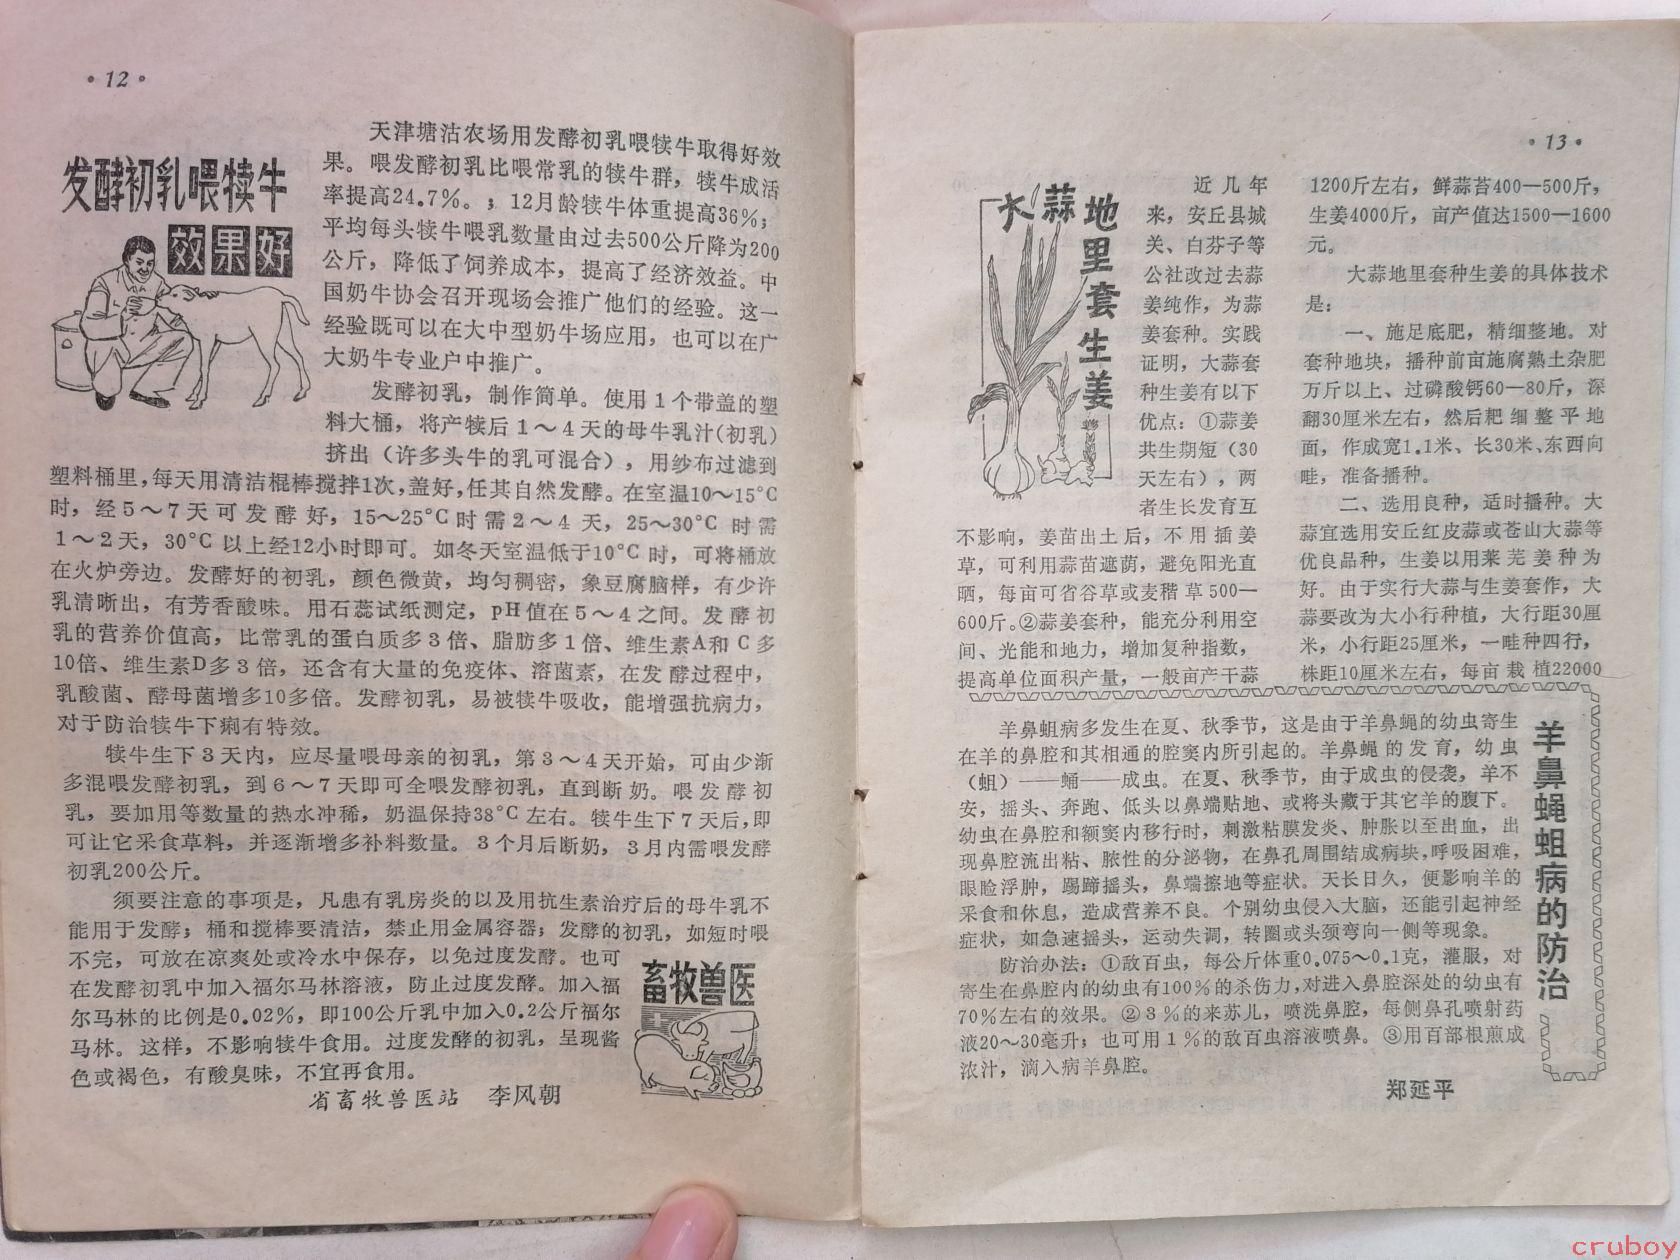 ·12·
发酵初乳喂犊牛
效果好
天津塘沽农场用发酵初乳喂犊牛取得好效
果。喂发酵初乳比喂常乳的犊牛群，犊牛成活
率提高24.7%。；12月龄犊牛体重提高36%；
平均每头犊牛喂乳数量由过去500公斤降为200
公斤，降低了饲养成本，提高了经济效益。中
国奶牛协会召开现场会推广他们的经验。这一
经验既可以在大中型奶牛场应用，也可以在广
大奶牛专业户中推广。
发酵初乳，制作简单。使用1个带盖的塑
料大桶，将产犊后1～4天的母牛乳汁(初乳)
挤出（许多头牛的乳可混合），用纱布过滤到
塑料桶里，每天用清洁棍棒搅拌1次，盖好，任其自然发酵。在室温10～15°C
时，经5～7天可发酵好，15～25°C时需2～4天，25～30°C时需
1～2天，30°C以上经12小时即可。如冬天室温低于10°C时，可将桶放
在火炉旁边。发酵好的初乳，颜色微黄，均匀稠密，象豆腐脑样，有少许
乳清晰出，有芳香酸味。用石蕊试纸测定，pH值在5～4之间。发酵初
乳的营养价值高，比常乳的蛋白质多3倍、脂肪多1倍、维生素A和C多
10倍、维生素D多3倍，还含有大量的免疫体、溶菌素，在发酵过程中，
乳酸菌、酵母菌增多10多倍。发酵初乳，易被犊牛吸收，能增强抗病力，
对于防治犊牛下痢有特效。
犊牛生下3天内，应尽量喂母亲的初乳，第3～4天开始，可由少渐
多混喂发酵初乳，到6～7天即可全喂发酵初乳，直到断奶。喂发酵初
乳，要加用等数量的热水冲稀，奶温保持38°C左右。犊牛生下7天后，即
可让它采食草料，并逐渐增多补料数量。3个月后断奶，3月内需喂发酵
初乳200公斤。
须要注意的事项是，凡患有乳房炎的以及用抗生素治疗后的母牛乳不
能用于发酵；桶和搅棒要清洁，禁止用金属容器；发酵的初乳，如短时喂
不完，可放在凉爽处或冷水中保存，以免过度发酵。也可
在发酵初乳中加入福尔马林溶液，防止过度发酵。加入福
尔马林的比例是0.02%，即100公斤乳中加入0.2公斤福尔
马林。这样，不影响犊牛食用。过度发酵的初乳，呈现酱
色或褐色，有酸臭味，不宜再食用。
省畜牧兽医站 李风朝
畜牧兽医
·13·
大蒜地里套生姜
近几年
来，安丘县城
关、白芬子等
公社改过去蒜
姜纯作，为蒜
姜套种。实践
证明，大蒜套
种生姜有以下
优点：①蒜姜
共生期短（30
天左右），两
者生长发育互
不影响，姜苗出土后，不用插姜
草，可利用蒜苗遮荫，避免阳光直
晒，每亩可省谷草或麦稭草500—
600斤。②蒜姜套种，能充分利用空
间、光能和地力，增加复种指数，
提高单位面积产量，一般亩产干蒜
1200斤左右，鲜蒜苔400—500斤，
生姜4000斤，亩产值达1500—1600
元。
大蒜地里套种生姜的具体技术
是：
一、施足底肥，精细整地。对
套种地块，播种前亩施腐熟土杂肥
万斤以上、过磷酸钙60—80斤，深
翻30厘米左右，然后耙细整平地
面，作成宽1.1米、长30米、东西向
畦，准备播种。
二、选用良种，适时播种。大
蒜宜选用安丘红皮蒜或苍山大蒜等
优良品种，生姜以用莱芜姜种为
好。由于实行大蒜与生姜套作，大
蒜要改为大小行种植，大行距30厘
米，小行距25厘米，一畦种四行，
株距10厘米左右，每亩栽植22000
羊鼻蝇蛆病的防治
羊鼻蛆病多发生在夏、秋季节，这是由于羊鼻蝇的幼虫寄生
在羊的鼻腔和其相通的腔窦内所引起的。羊鼻蝇的发育，幼虫
（蛆）——蛹——成虫。在夏、秋季节，由于成虫的侵袭，羊不
安，摇头、奔跑、低头以鼻端贴地、或将头藏于其它羊的腹下。
幼虫在鼻腔和额窦内移行时，刺激粘膜发炎、肿胀以至出血，出
现鼻腔流出粘、脓性的分泌物，在鼻孔周围结成病块，呼吸困难，
眼睑浮肿，踢蹄摇头，鼻端擦地等症状。天长日久，便影响羊的
采食和休息，造成营养不良。个别幼虫侵入大脑，还能引起神经
症状，如急速摇头，运动失调，转圈或头颈弯向一侧等现象。
防治办法：①敌百虫，每公斤体重0.075～0.1克，灌服，对
寄生在鼻腔内的幼虫有100%的杀伤力，对进入鼻腔深处的幼虫有
70%左右的效果。②3%的来苏儿，喷洗鼻腔，每侧鼻孔喷射药
液20～30毫升；也可用1%的敌百虫溶液喷鼻。③用百部根煎成
浓汁，滴入病羊鼻腔。
郑延平
cruboy